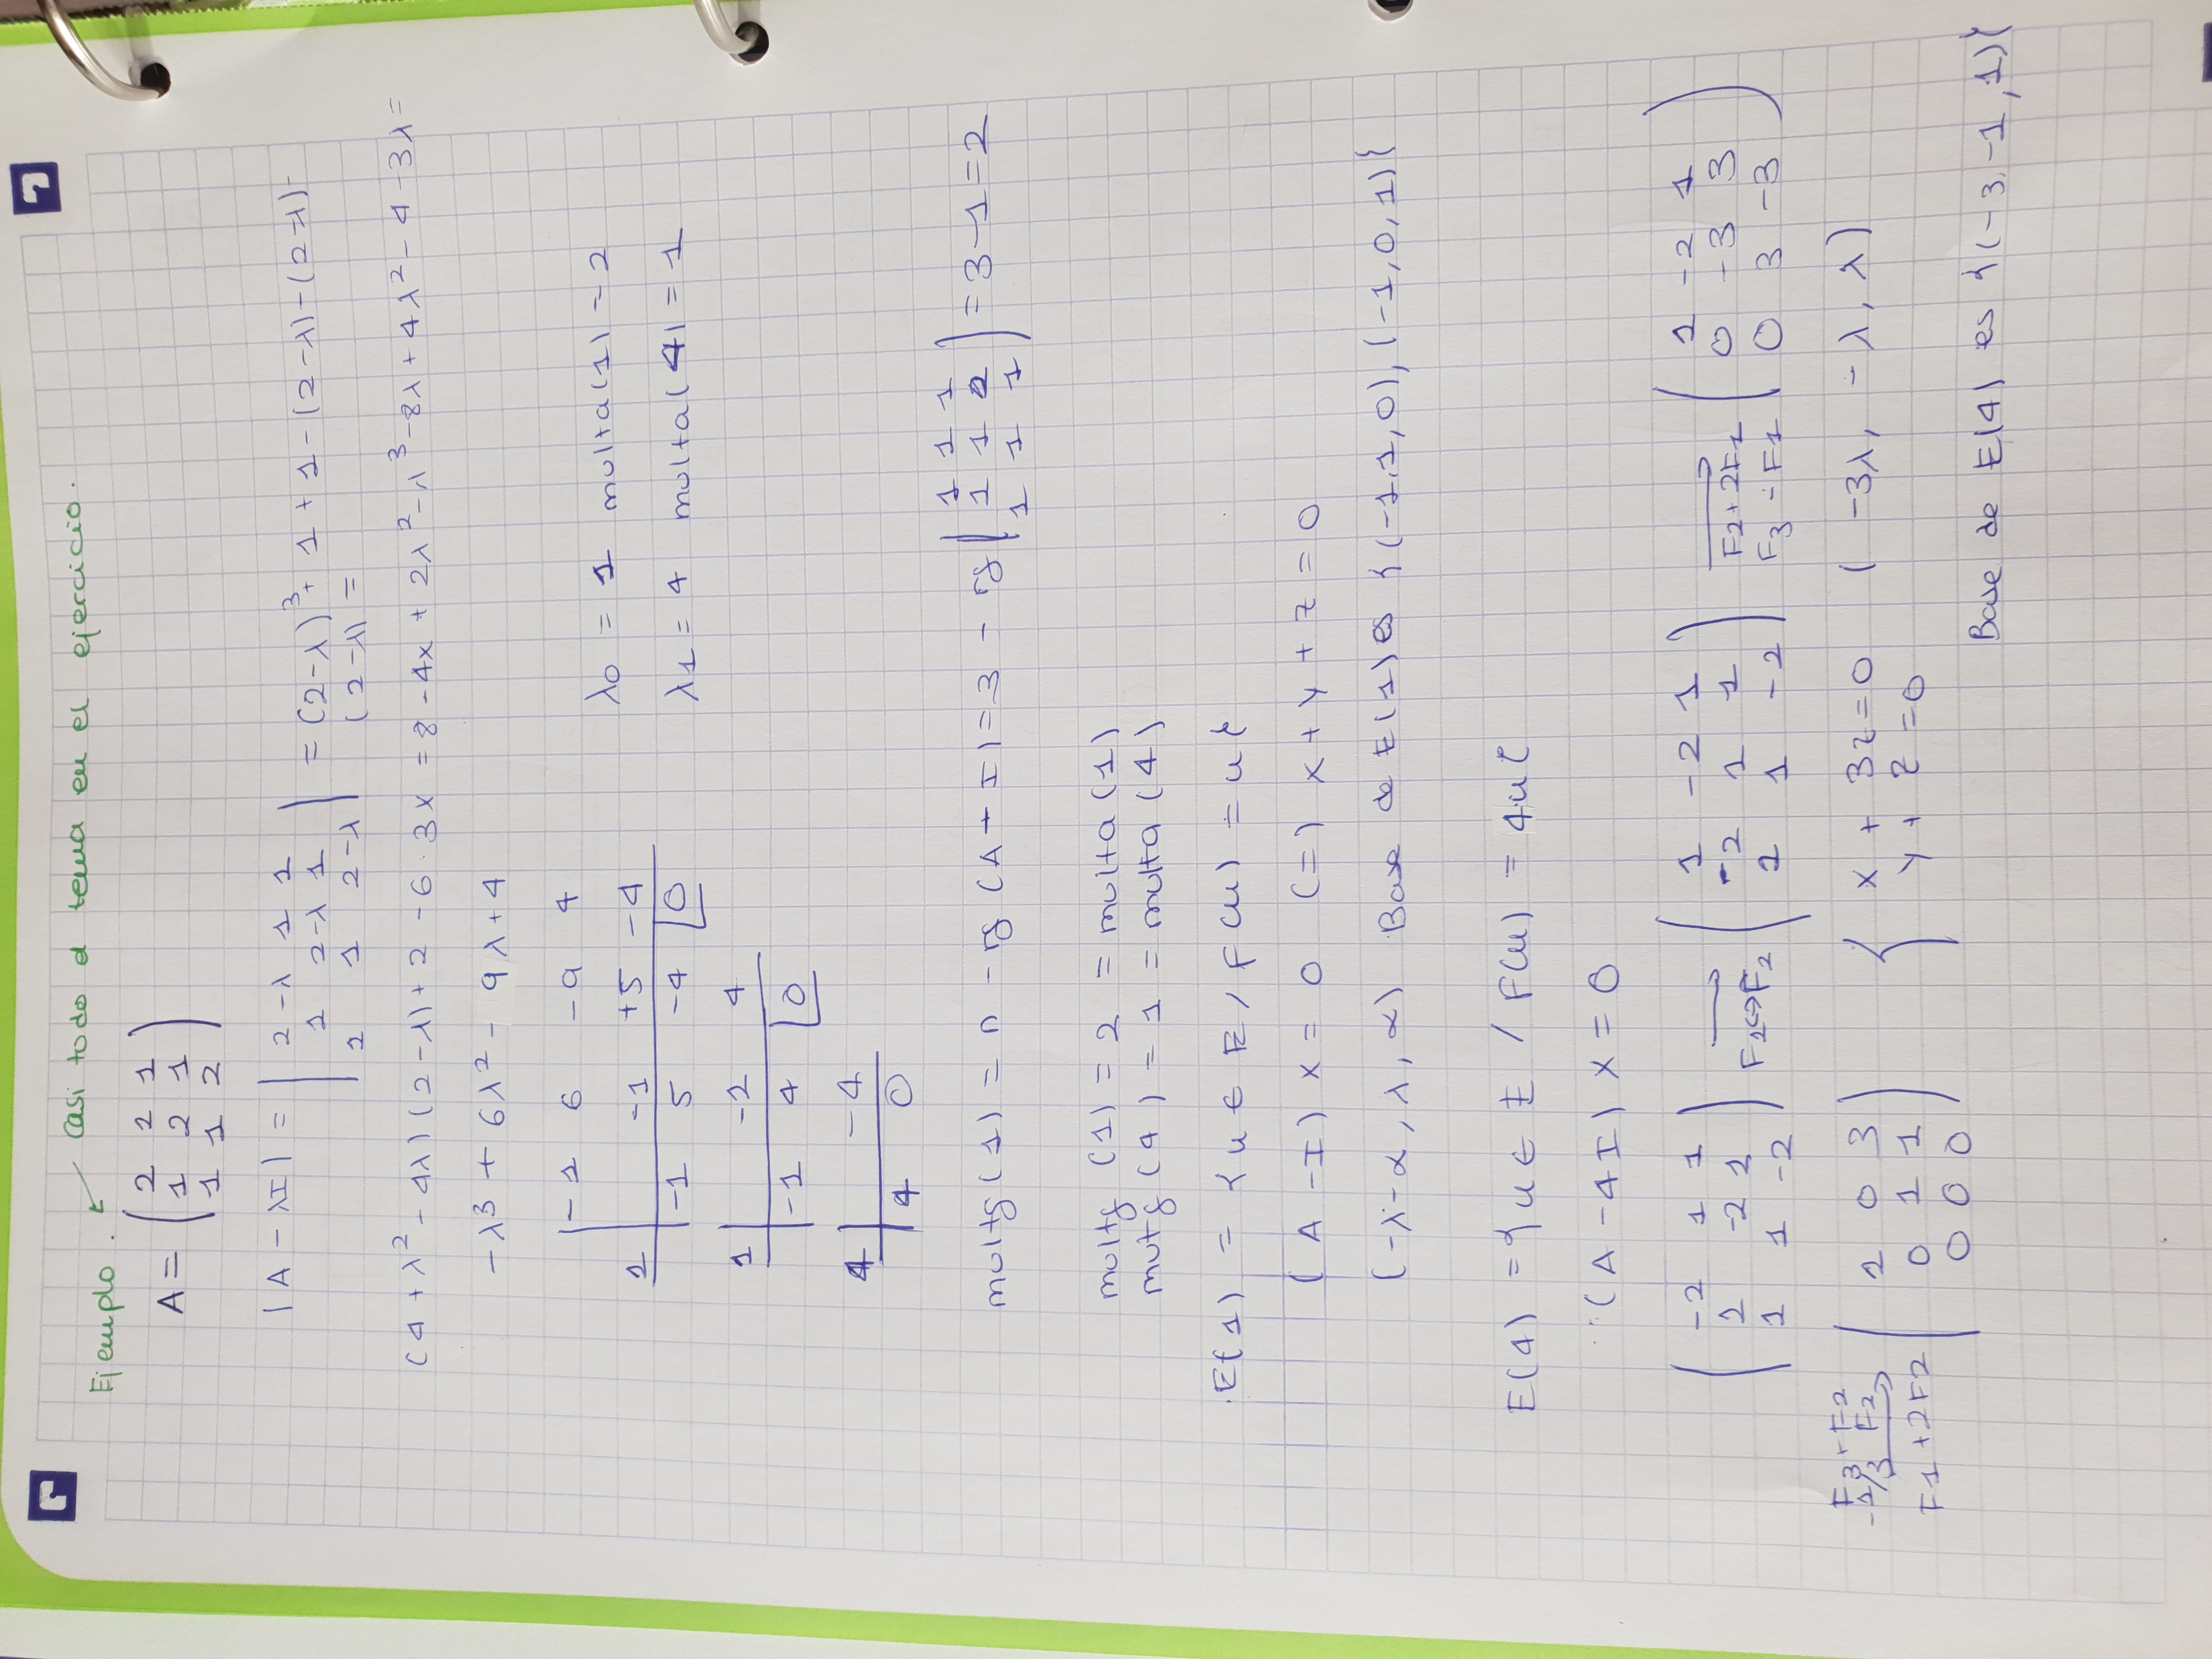 Ejemplo. ← Casi todo el tema en el ejercicio.
A = ( 2 1 1
1 2 1
1 1 2 )
|A - λI| = | 2-λ 1 1
1 2-λ 1
1 1 2-λ | = (2-λ)³ + 1 + 1 - (2-λ) - (2-λ) -
(2-λ) =
(4 + λ² - 4λ)(2-λ) + 2 - 6 · 3x = 8 - 4x + 2λ² - λ³ - 8λ + 4λ² - 4 - 3λ =
-λ3 + 6λ² - 9λ + 4
| -1 6 -9 4
1 -1 +5 -4
-1 5 -4 |0
λ0 = 1 multa(1) - 2
1 -2 4
-1 4 |0
λ1 = 4 multa(4) = 1
4 -4
4 0
multg(1) = n - rg(A + I) = 3 - rg( 1 1 1
1 1 2
1 1 1 ) = 3 - 1 = 2
multg(1) = 2 = multa(1)
mutg(4) = 1 = multa(4)
E(1) = {u ∈ E / F(u) = u}
(A - I) x = 0 (=) x + y + z = 0
(-λ-α, λ, α) Base de E(1) es {(-1,1,0), (-1,0,1)}
E(4) = {u ∈ E / F(u) = 4u}
(A - 4I) x = 0
( -2 1 1
1 -2 1
1 1 -2 ) F1↔F2 ( 1 -2 1
-2 1 1
1 1 -2 ) F2 + 2F1
F3 - F1 ( 1 -2 1
0 -3 3
0 3 -3 )
F3 + F2
-1/3 F2
F1 + 2F2 ( 1 0 3
0 1 1
0 0 0 ) { x + 3z = 0
y + z = 0 (-3λ, -λ, λ)
Base de E(4) es {(-3,-1,1)}